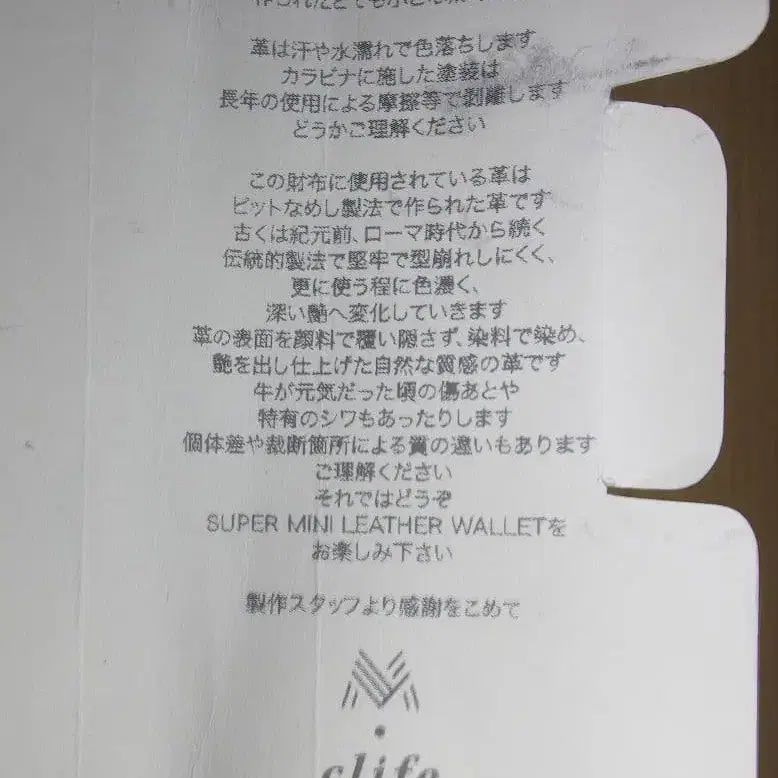 革は汗や水濡れで色落ちします
カラビナに施した塗装は
長年の使用による摩擦等で剥離します
どうかご理解ください
この財布に使用されている革は
ピットなめし製法で作られた革です
古くは紀元前、ローマ時代から続く
伝統的製法で堅牢で型崩れしにくく、
更に使う程に色濃く、
深い艶へ変化していきます
革の表面を顔料で覆い隠さず、染料で染め、
艶を出し仕上げた自然な質感の革です
牛が元気だった頃の傷あとや
特有のシワもあったりします
個体差や裁断箇所による質の違いもあります
ご理解ください
それではどうぞ
SUPER MINI LEATHER WALLETを
お楽しみ下さい
製作スタッフより感謝をこめて
clife